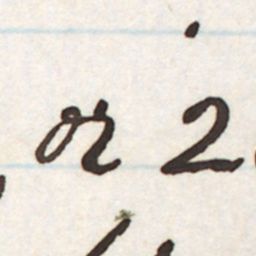 or 2